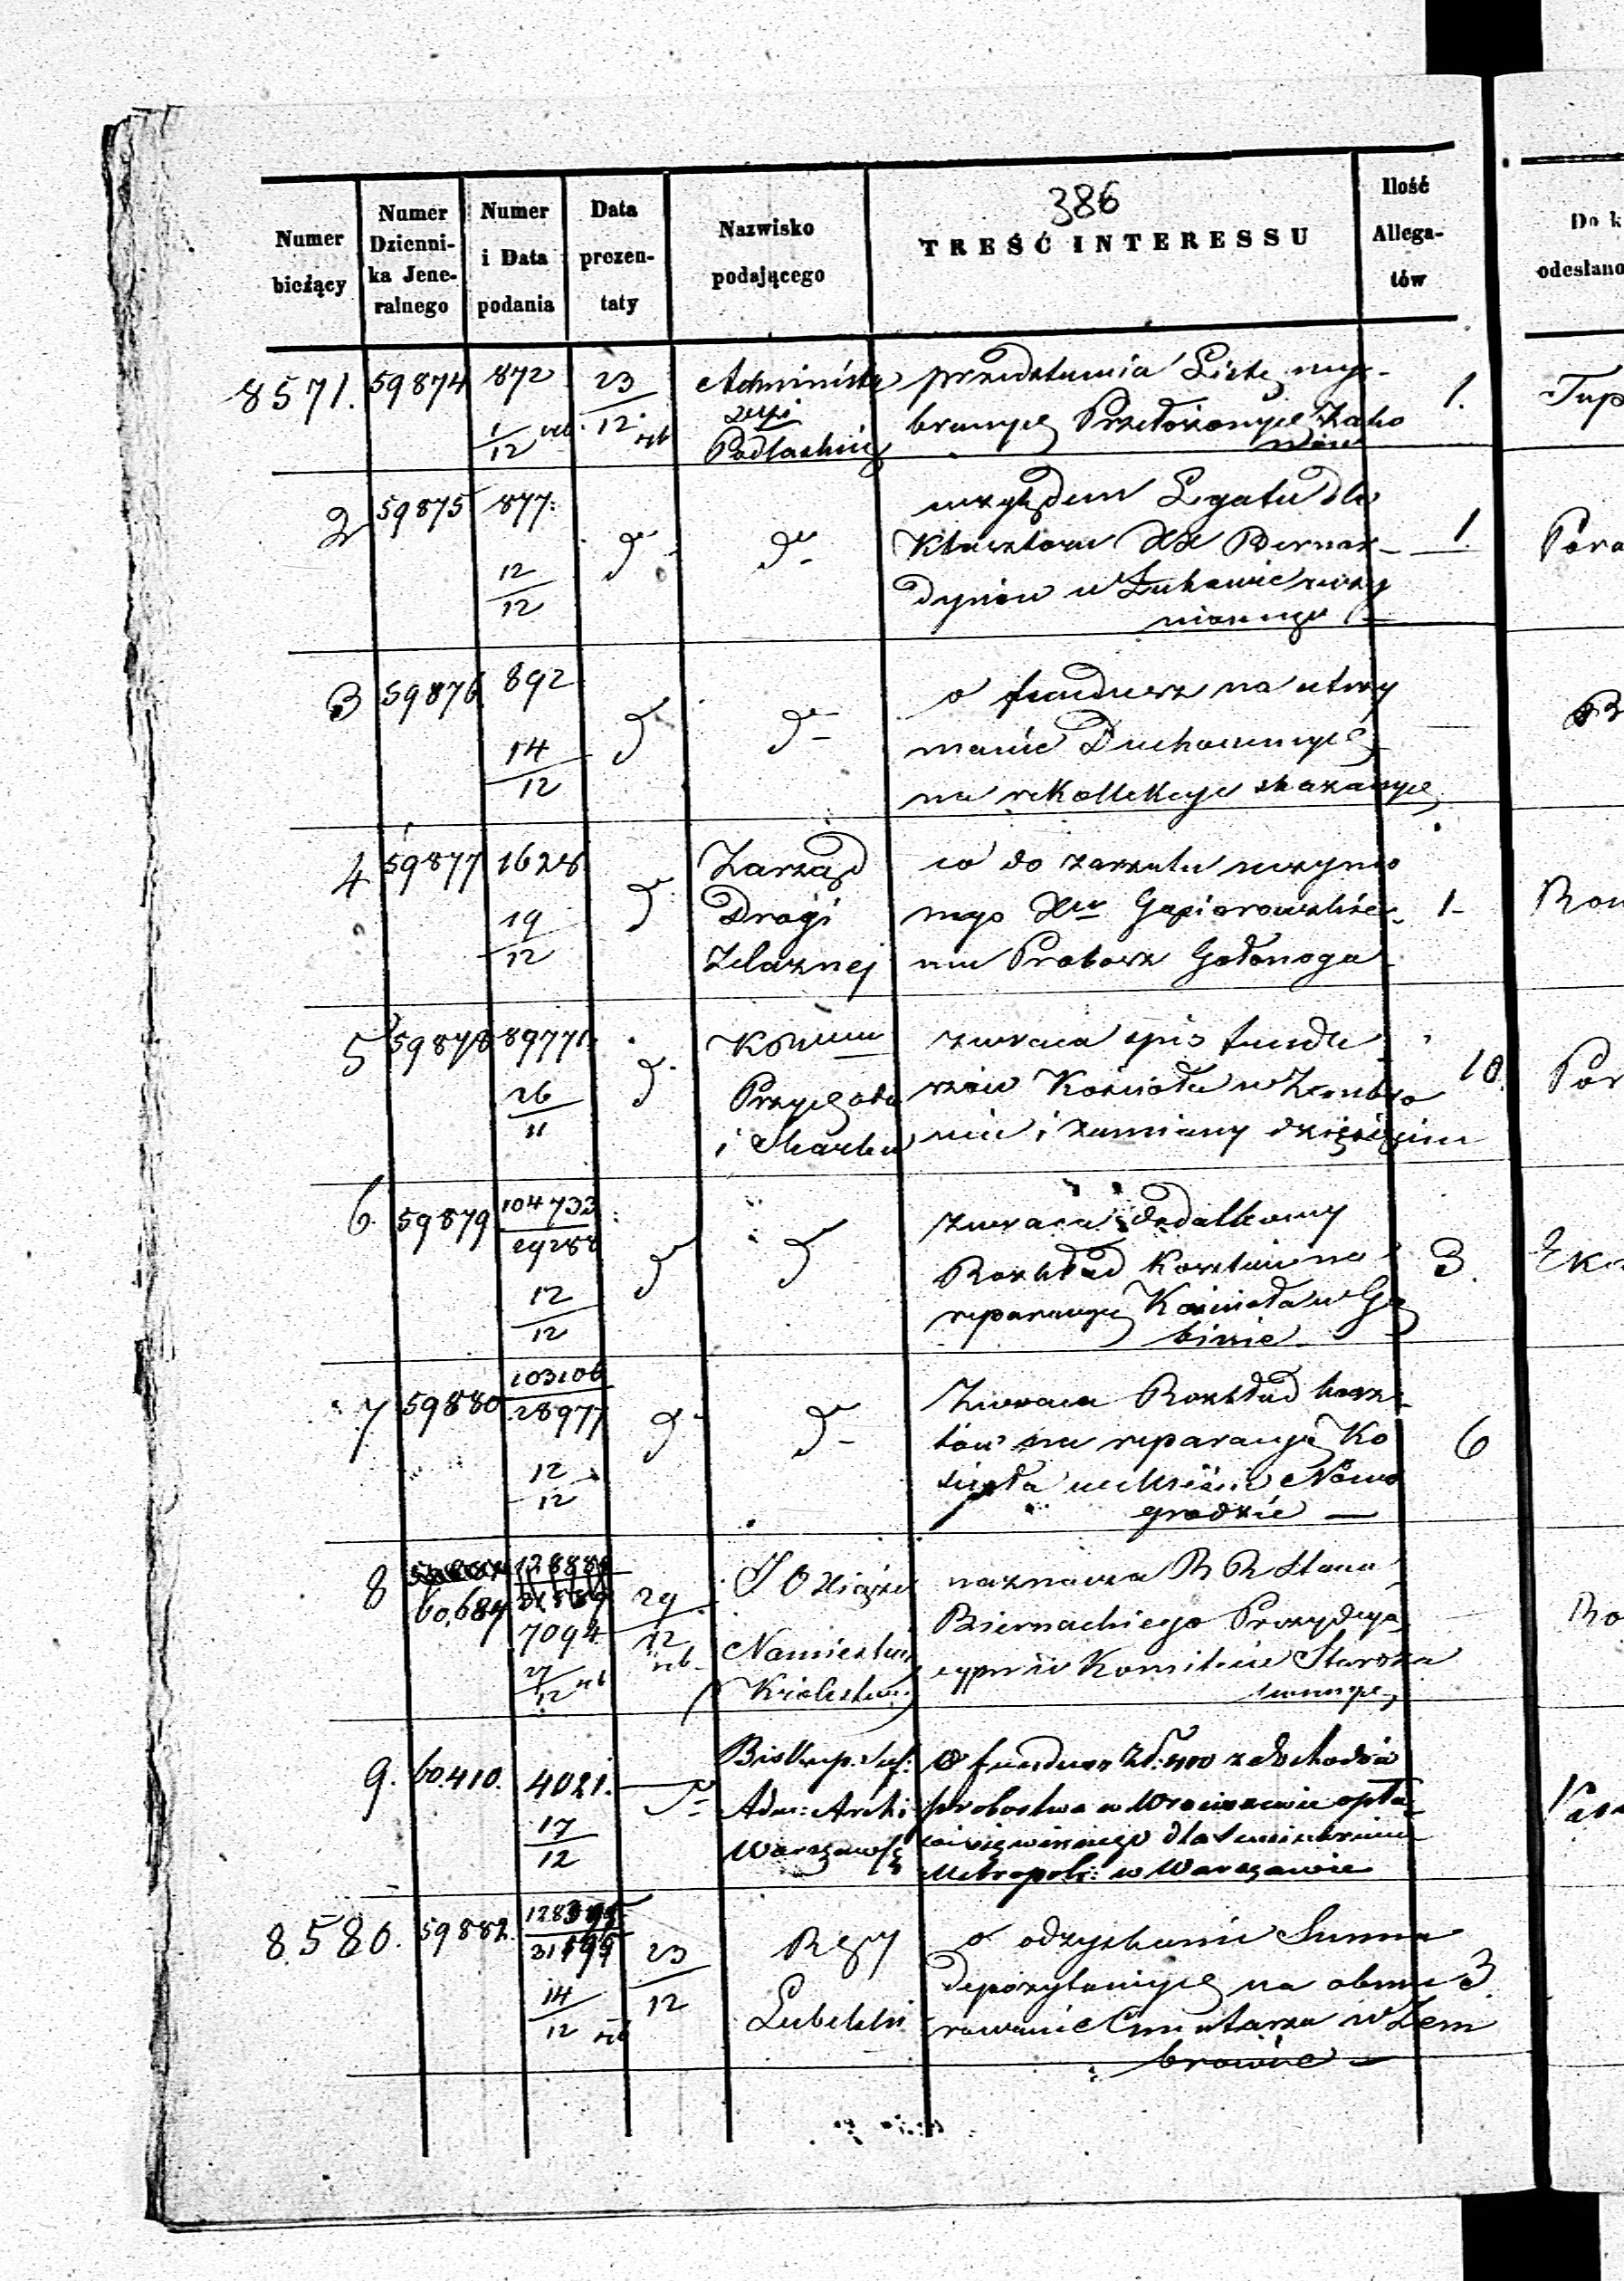 386
Numer bieżący
Numer Dzienni-ka Jene-ralnego
Numer i Data podania
Data prezen-taty
Nazwisko podającego
TREŚĆ INTERESSU
Ilość Allega-tów
Do k
odesłano
8571. 59874 872 1/12 23/12
Podlaskiej
przedstawia Listę wy-
branych Przełożonych Zako
nów
1.
2 59875 877. 12/12 do do
względem Legatu dla
Klasztoru XX Bernar-
dynów w Łukowie uczy
nionego
1.
3 59876 892 14/12 do do
o fundusz na utrzy
manie Duchownych
na rekollekcye skazanych
4 59877 1628 19/12 do
Zarząd
Drogi
Żelaznej
co do zarzutu uczynio
nego Xu Gąsiorowskie-
mu Probosz Gołonoga
1-
5 59878 89771. 26/11 do
Komm
Przychodu
i Skarbu
zwraca spis fundu
szów Kościoła w
nie i zamiany dziesięcin
10.
6. 59879 104733/29258 12/12 do do
zwraca dodatkowy
Rozkład kosztów na
reparacyę Kościoła w Gą
binie
3.
7 59880 103106/28977 12/12 do do
Zwraca Rozkład kosz-
tów na reparacyę Ko
ścioła w Mieście Nowo
grodzie
6
8 60,684 7094 27/12 29/12
JO Xiąże
Namiestnik
(Królestwa)
naznacza R R Stanu
Biernackiego Prezydują
cym w Komitecie Staroza
konnych
9. 60.410. 4021. 17/12 do
Biskup. Suf:
Adm: Archi
Warszawski
O fundusz zł: 400 z dochodów
probostwa w opła-
cać się winnego dla Seminarium
Metropoli: w Warszawie
8.580. 59882. 14/12 23/12
Rząd
Lubelski
o odzyskanie Summ
depozytowych na obmu
rowanie Cmentarza w Dem
browie
3.